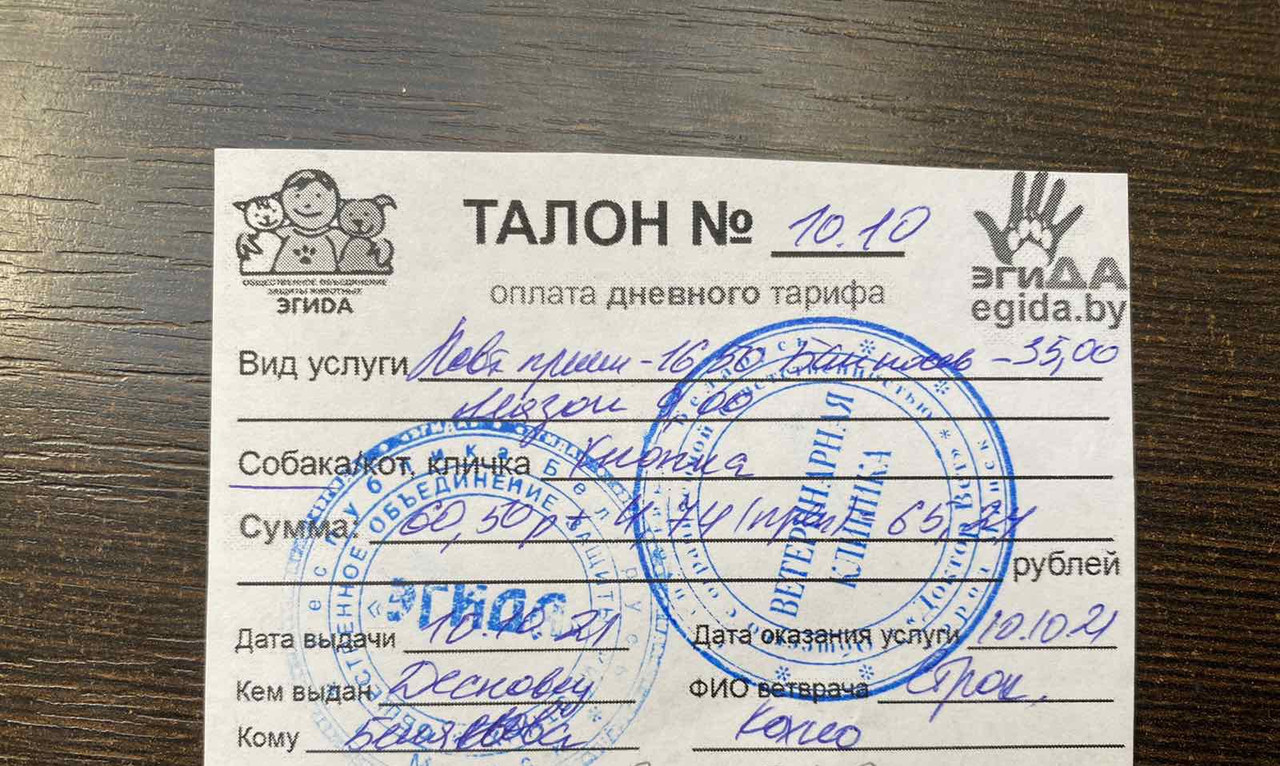 ОБЩЕСТВЕННОЕ ОБЪЕДИНЕНИЕ
ЗАЩИТЫ ЖИВОТНЫХ
ЭГИDА
ТАЛОН № 10.10
оплата дневного тарифа
эгиDА
egida.by
Вид услуги Повт прием - 16,50 Бак посев - 35,00
9,00
Собака/кот, кличка Кнопка
Сумма: 60,50р + 4,74 65,24
рублей
Дата выдачи 10.10.21 Дата оказания услуги 10.10.21
Кем выдан ФИО ветврача
Кому
ВЕТЕРИНАРНАЯ
КЛИНИКА
«Доктор Вет»
ОБЪЕДИНЕНИЕ ЗАЩИТЫ
«ЭГИДА